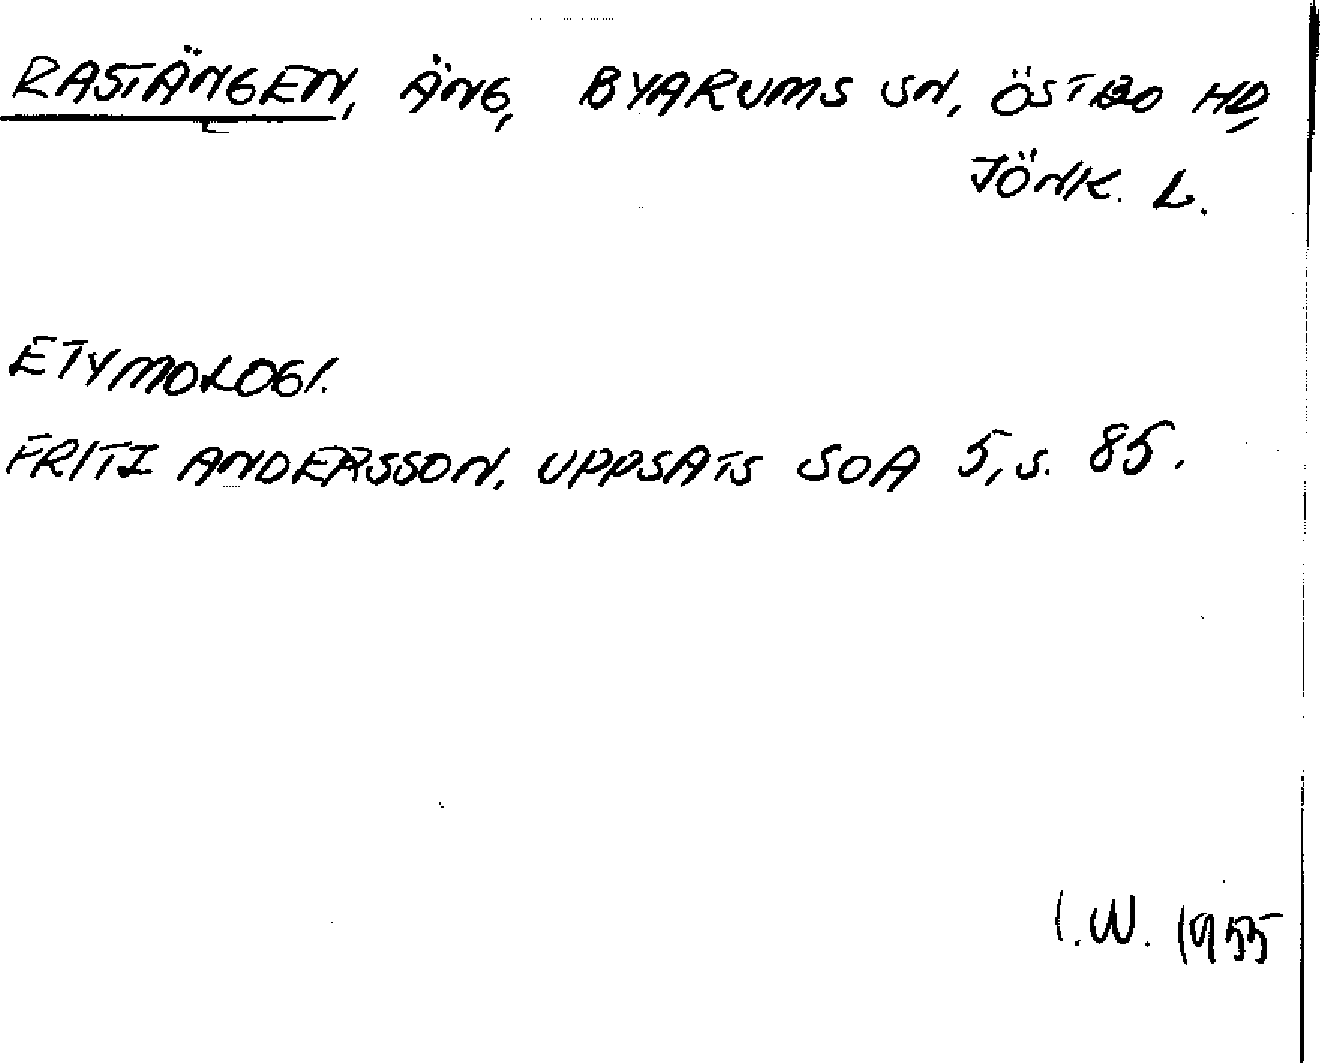 RASTÄNGEN, ÄNG, BYARUMS SN, ÖSTBO HD,
JÖNK. L.
ETYMOLOGI.
FRITZ ANDERSSON, UPPSATS SOA 5, S. 85.
I.W. 1955